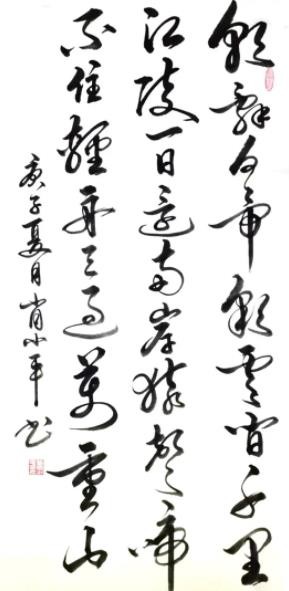 朝辞白帝彩雲间千里
江陵一日還两岸猿聲啼
不住輕舟已過萬重山
庚子夏月肖小平书